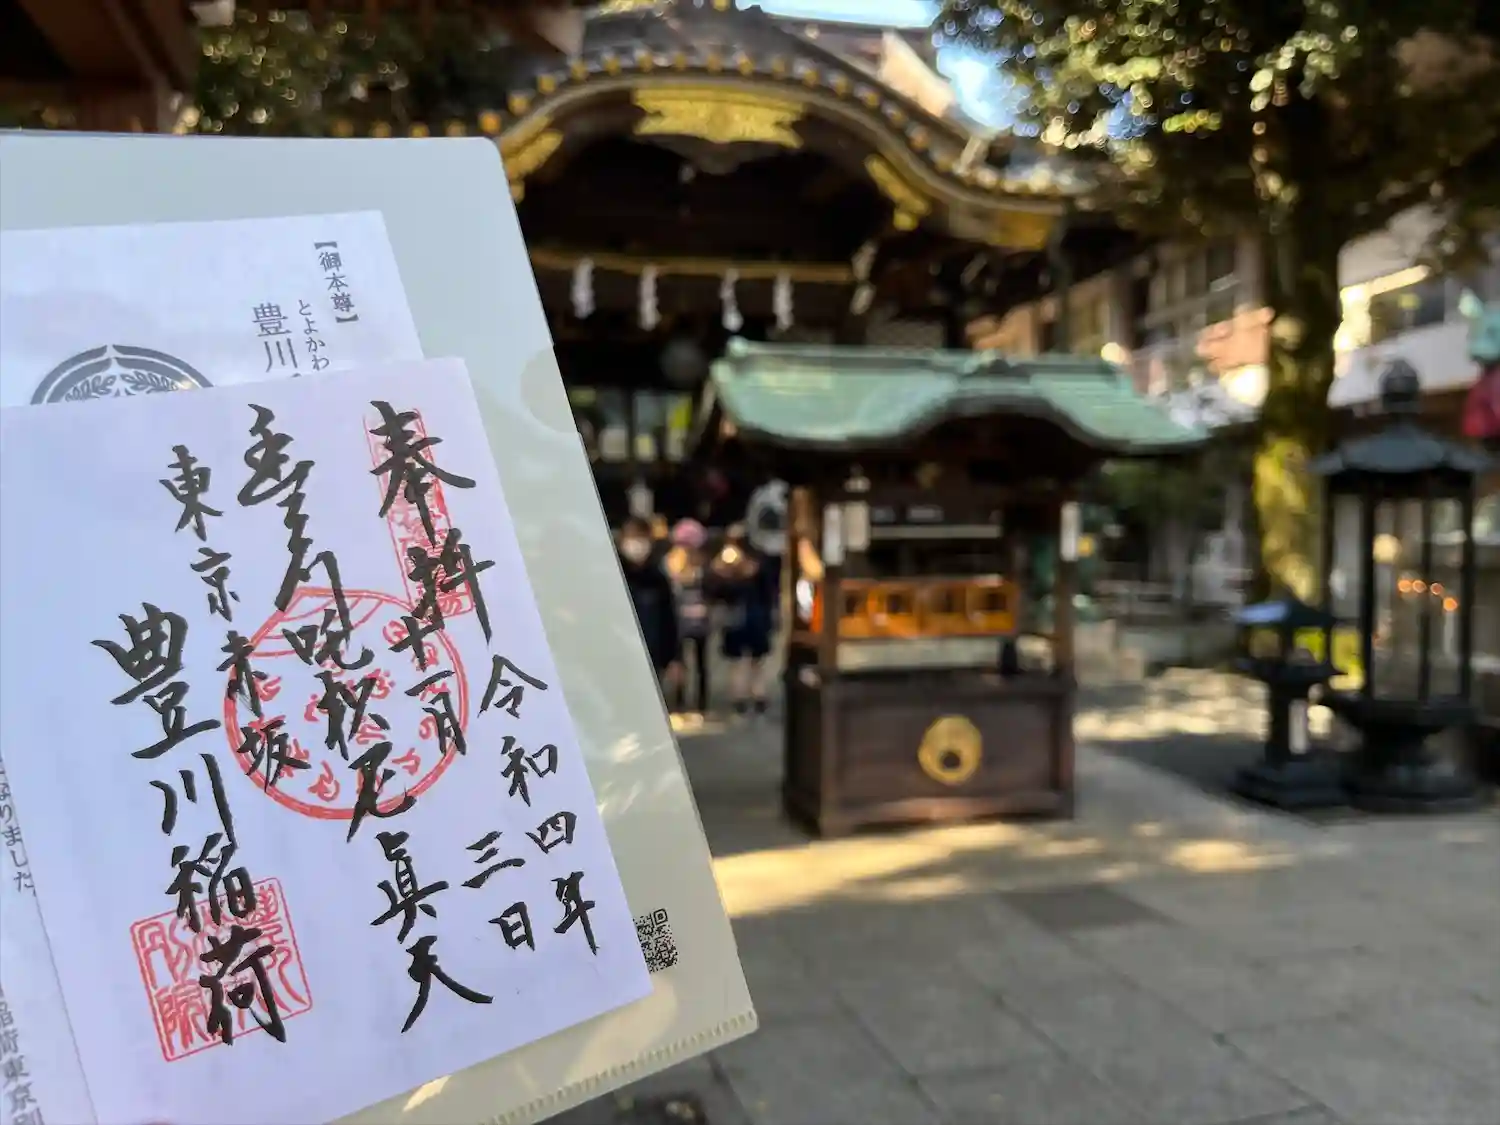 奉拝
令和四年
十一月三日
豊川吒枳尼眞天
東京赤坂
豊川稲荷
【御本尊】
とよかわ
豊川
なりました。
稲荷東京別